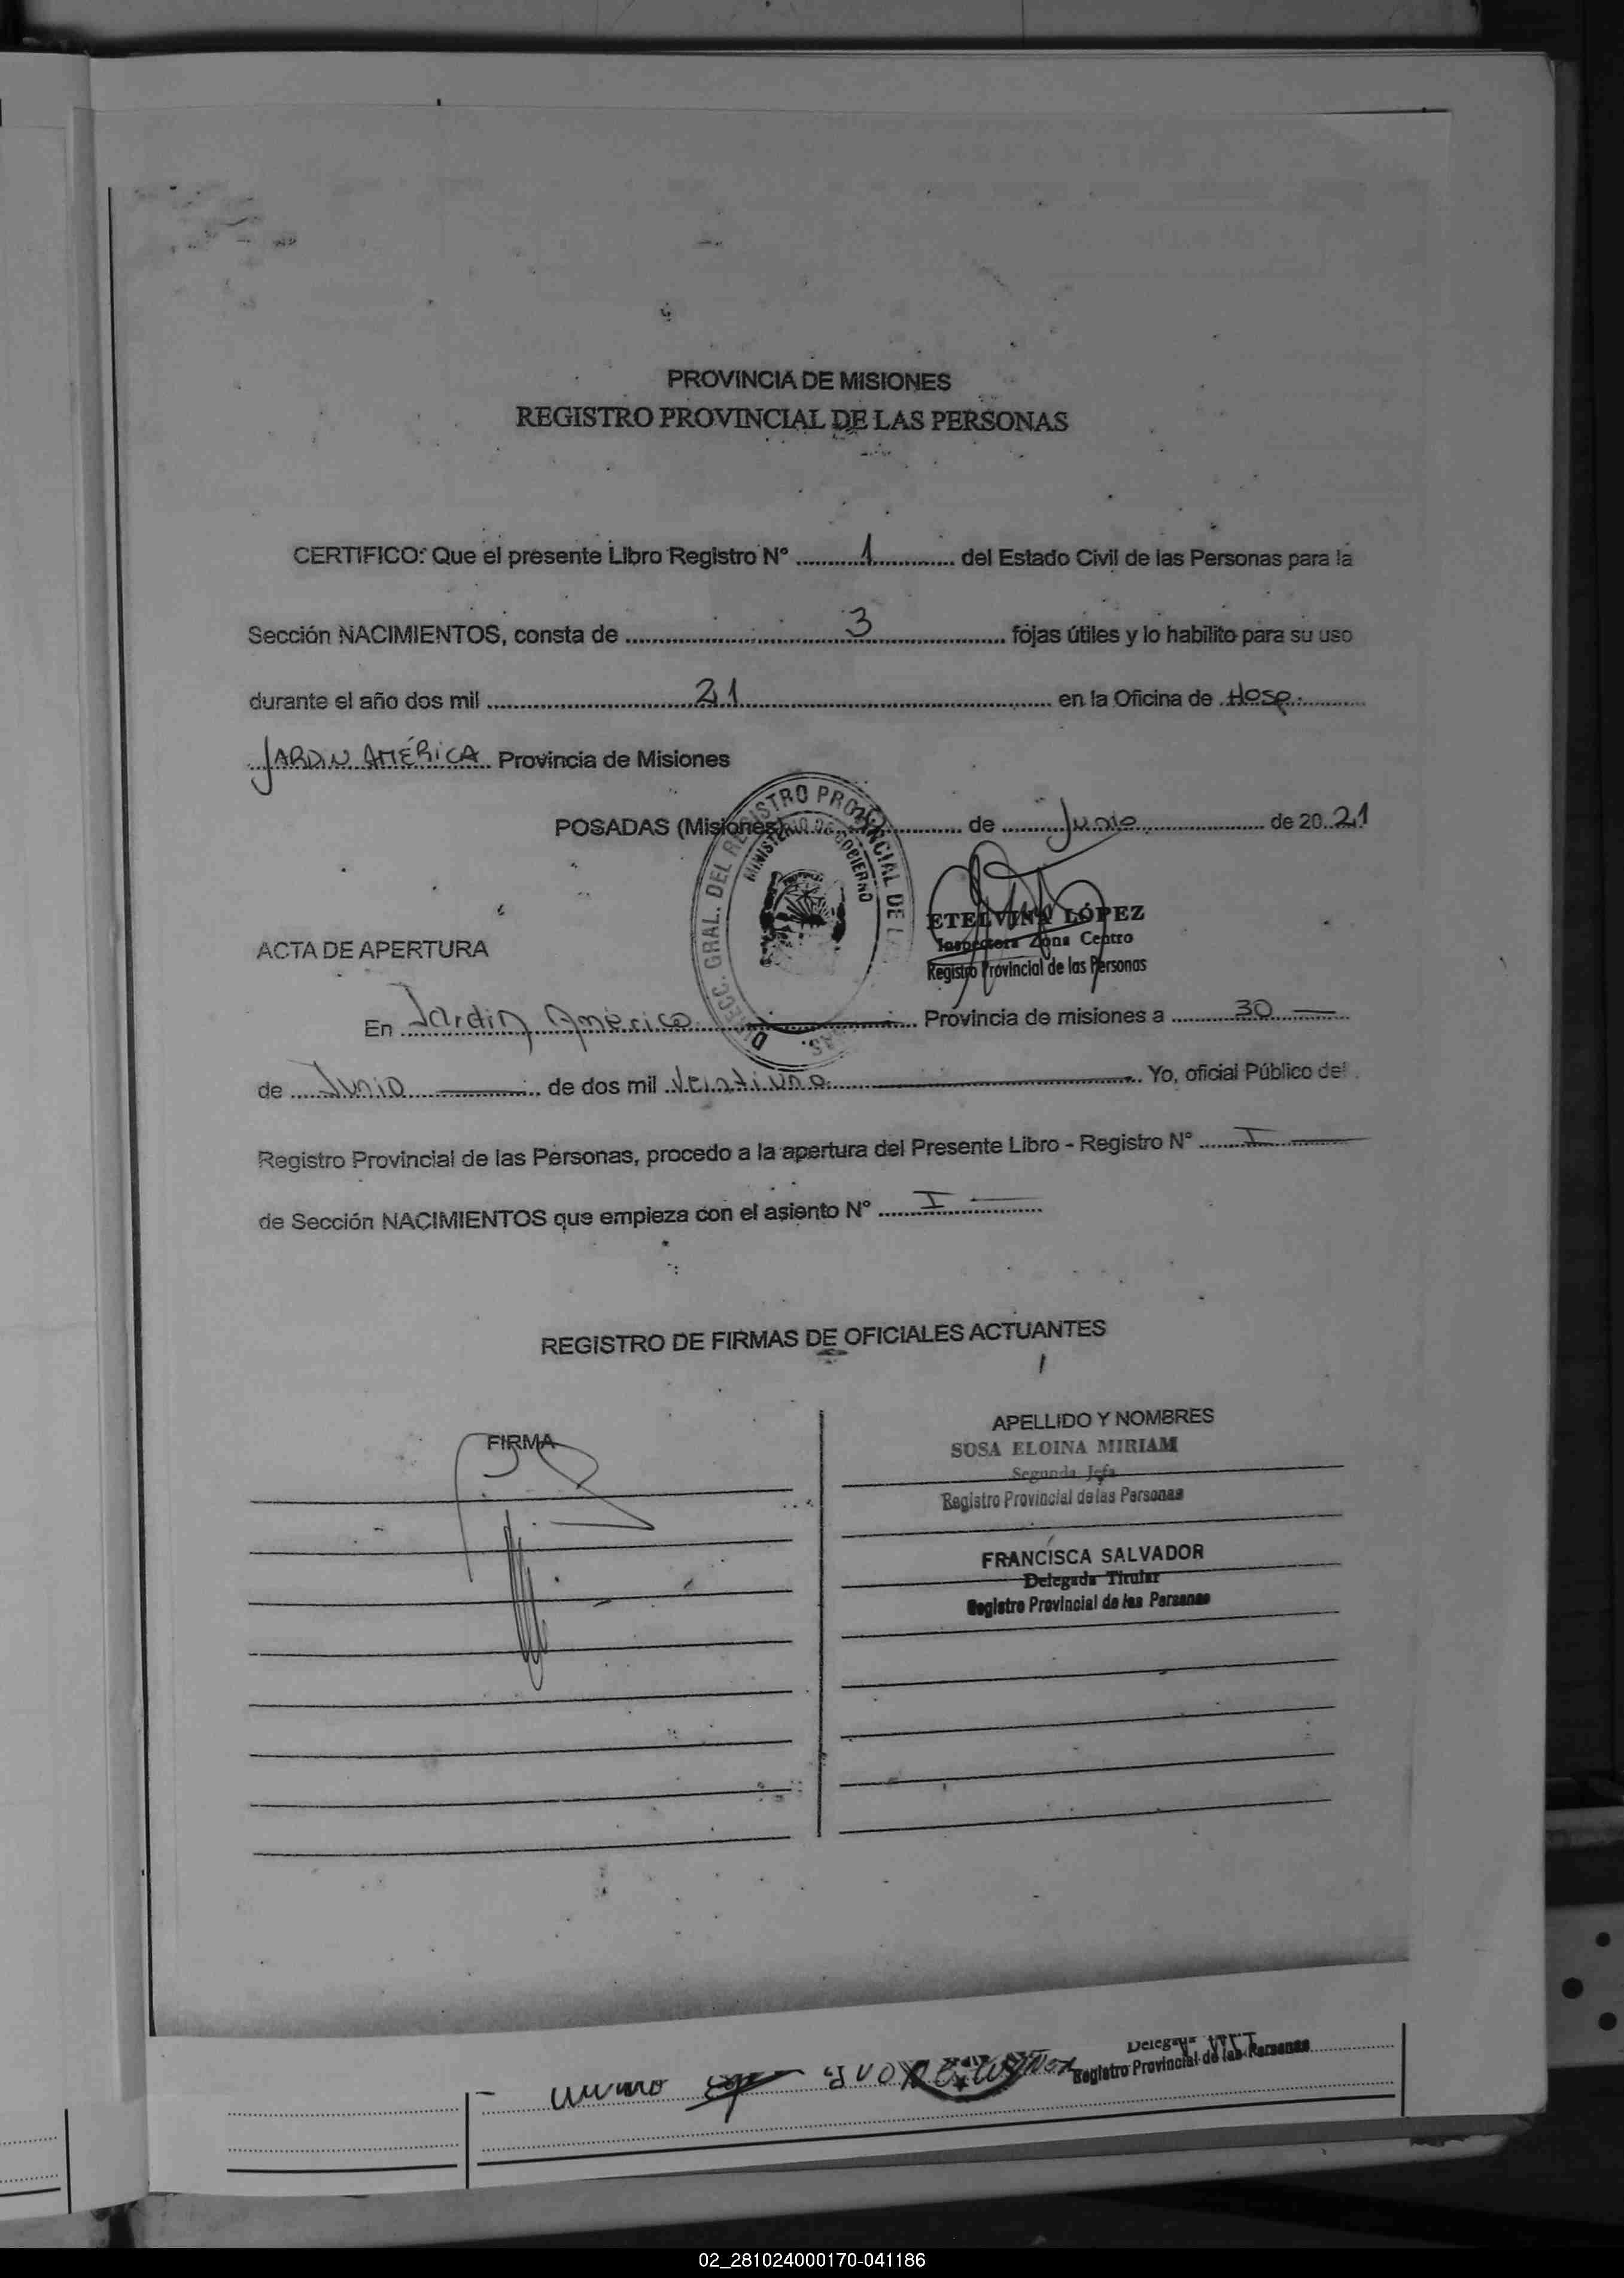 PROVINCIA DE MISIONES
REGISTRO PROVINCIAL DE LAS PERSONAS
CERTIFICO: Que el presente Libro Registro N° 1 del Estado Civil de las Personas para la
Sección NACIMIENTOS, consta de 3 fojas útiles y lo habilito para su uso
durante el año dos mil 21 en la Oficina de Hosp.
JARDIN AMÉRICA Provincia de Misiones
POSADAS (Misiones) de Junio de 2021
DIRECC. GRAL. DEL REGISTRO PROVINCIAL DE LAS
MINISTERIO DE GOBIERNO
ETELVINA LÓPEZ
Inspectora Zona Centro
Registro Provincial de las Personas
ACTA DE APERTURA
En Jardin América Provincia de misiones a 30
de Junio de dos mil Veintiuno Yo, oficial Público del
Registro Provincial de las Personas, procedo a la apertura del Presente Libro - Registro N° I
de Sección NACIMIENTOS que empieza con el asiento N° I
REGISTRO DE FIRMAS DE OFICIALES ACTUANTES
FIRMA
APELLIDO Y NOMBRES
SOSA ELOINA MIRIAM
Segunda Jefa
Registro Provincial de las Personas
FRANCISCA SALVADOR
Delegada Titular
Registro Provincial de las Personas
Delegada
Registro Provincial de las Personas
02_281024000170-041186